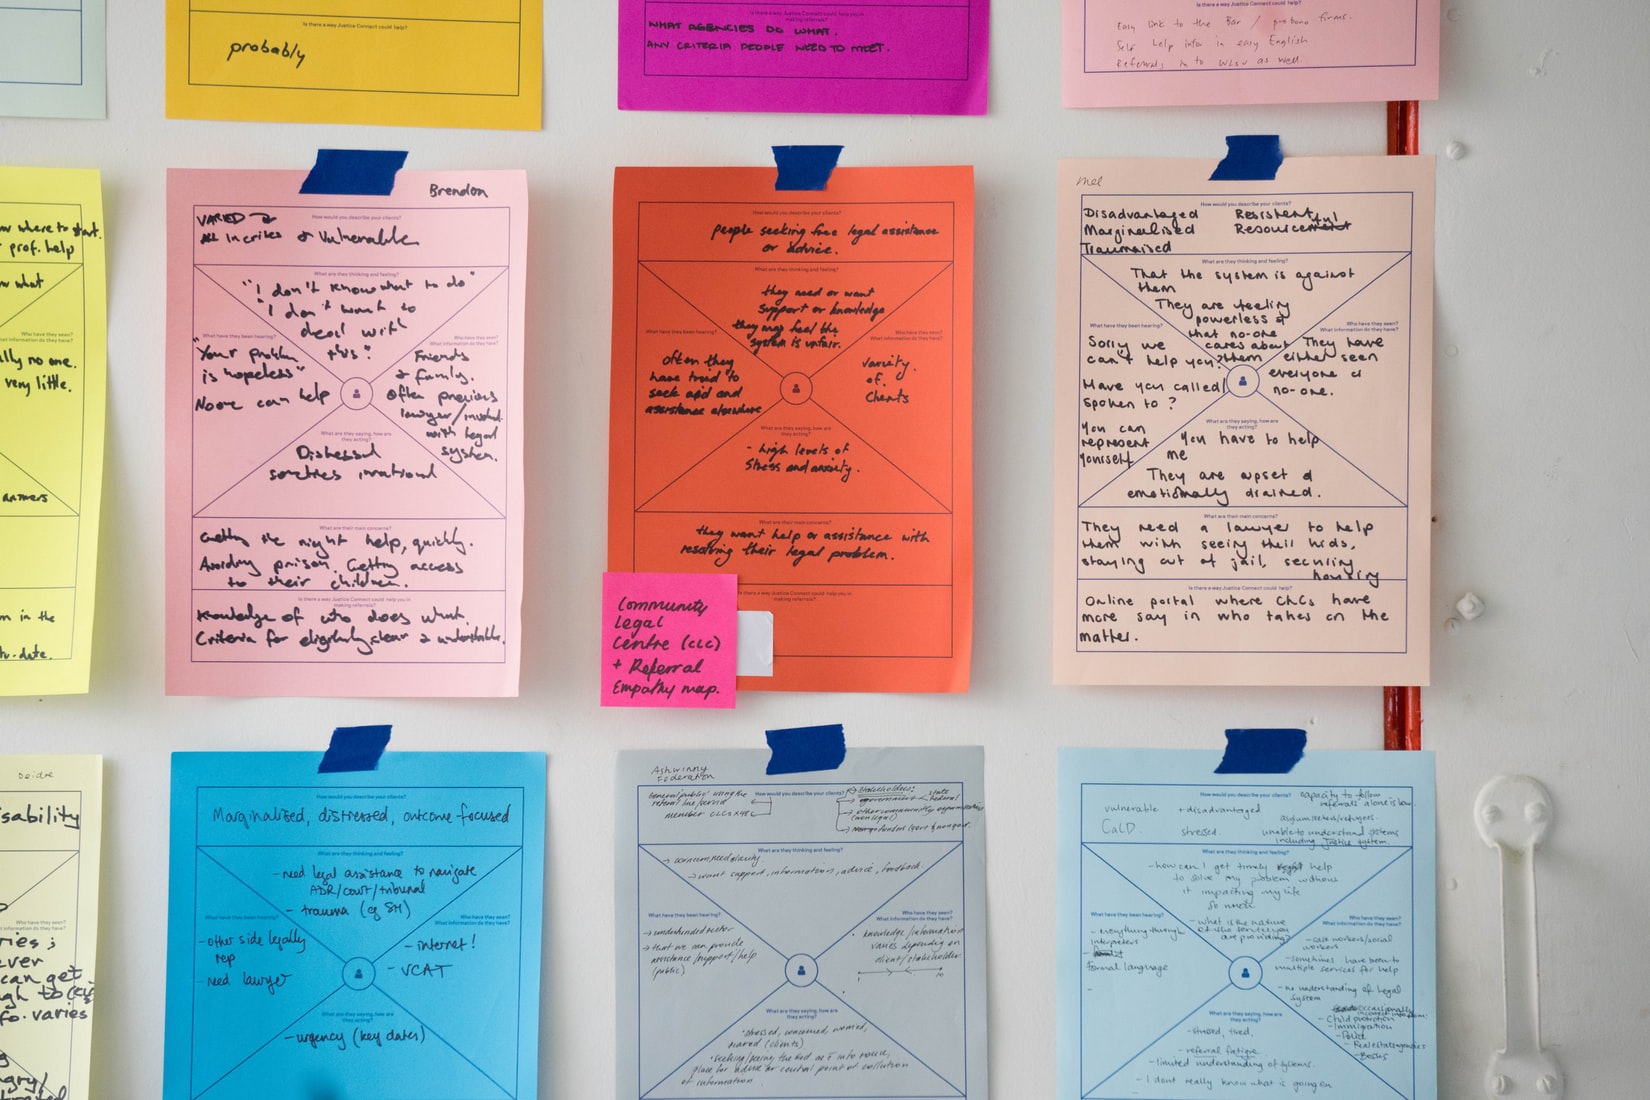 Is there a way Justice Connect could help?
probably
making referrals?
WHAT AGENCIES DO WHAT.
ANY CRITERIA PEOPLE NEED TO MEET.
Easy link to the Bar / probono firms.
Self Help info in easy English
Referrals in to WLSV as well.
where to start.
prof. help
what
no one.
very little.
answers
in the
Brendon
How would you describe your clients?
VARIED
& Vulnerable
What are they thinking and feeling?
"I don't know what to do"
"I don't want to
deal with
this"
What have they been hearing?
"Your problem
is hopeless"
No one can help
Who have they seen?
What information do they have?
Friends
& family.
Often previous
lawyer/
with legal
system.
What are they saying, how are
they acting?
Distressed
sometimes irrational
What are their main concerns?
Getting the right help, quickly.
Avoiding prison. Getting access
to their children.
Is there a way Justice Connect could help you in
making referrals?
Knowledge of who does what.
Criteria for eligibility clear &
How would you describe your clients?
people seeking free legal assistance
or advice.
What are they thinking and feeling?
they need or want
support or knowledge
they may feel the
system is unfair.
What have they been hearing?
often they
have tried to
seek aid and
assistance elsewhere
Who have they seen?
What information do they have?
variety
of
clients
What are they saying, how are
they acting?
- high levels of
stress and anxiety.
What are their main concerns?
they want help or assistance with
resolving their legal problem.
Is there a way Justice Connect could help you in
making referrals?
Community
Legal
Centre (CLC)
+ Referral
Empathy map.
Mel
How would you describe your clients?
Disadvantaged
Marginalised
Traumatised
Resistent
Resourceful
What are they thinking and feeling?
That the system is against
them
They are feeling
powerless &
that no-one
cares about
them
What have they been hearing?
Sorry we
can't help you?
Have you called/
spoken to?
You can
represent
yourself
Who have they seen?
What information do they have?
They have
either seen
everyone or
no-one.
What are they saying, how are
they acting?
You have to help
me
They are upset &
emotionally drained.
What are their main concerns?
They need a lawyer to help
them with seeing their kids,
staying out of jail, securing
housing
Is there a way Justice Connect could help you in
making referrals?
Online portal where CLCs have
more say in who takes on the
matter.
Deidre
Who have they seen?
What information do they have?
can get
varies
How would you describe your clients?
Marginalised, distressed, outcome-focused
What are they thinking and feeling?
- need legal assistance to navigate
ADR/court/tribunal
- trauma (eg SH)
What have they been hearing?
- other side legally
rep
- need lawyer
Who have they seen?
What information do they have?
- internet!
- VCAT
What are they saying, how are
they acting?
- urgency (key dates)
Ashwinny
Federation
How would you describe your clients?
General public using the
referral line/service
member CLCs x 48
Stakeholders:
government
State
Federal
What are they thinking and feeling?
→ want support, information, advice, feedback.
What have they been hearing?
→ underfunded sector
→ that we can provide
assistance/support/help
(public)
Who have they seen?
What information do they have?
knowledge/information
varies depending on
client/stakeholder
What are they saying, how are
they acting?
stressed, concerned, worried,
scared (clients)
of information
How would you describe your clients?
vulnerable
+ disadvantaged
CaLD.
stressed.
capacity to follow
referrals alone is low.
asylum seekers/refugees.
unable to understand systems
including Justice system.
What are they thinking and feeling?
- how can I get timely help
to solve my problem without
it impacting my life
so much
- what is the nature
of the service you
are providing?
What have they been hearing?
- everything through
interpreters
formal language
Who have they seen?
What information do they have?
- case workers/social
workers
- sometimes have been to
multiple services for help
- no understanding of legal
system
- Child protection
- Immigration
- Police
- Real estate agencies
What are they saying, how are
they acting?
- stressed, tired,
- referral fatigue.
- limited understanding of systems.
- I dont really know what is going on